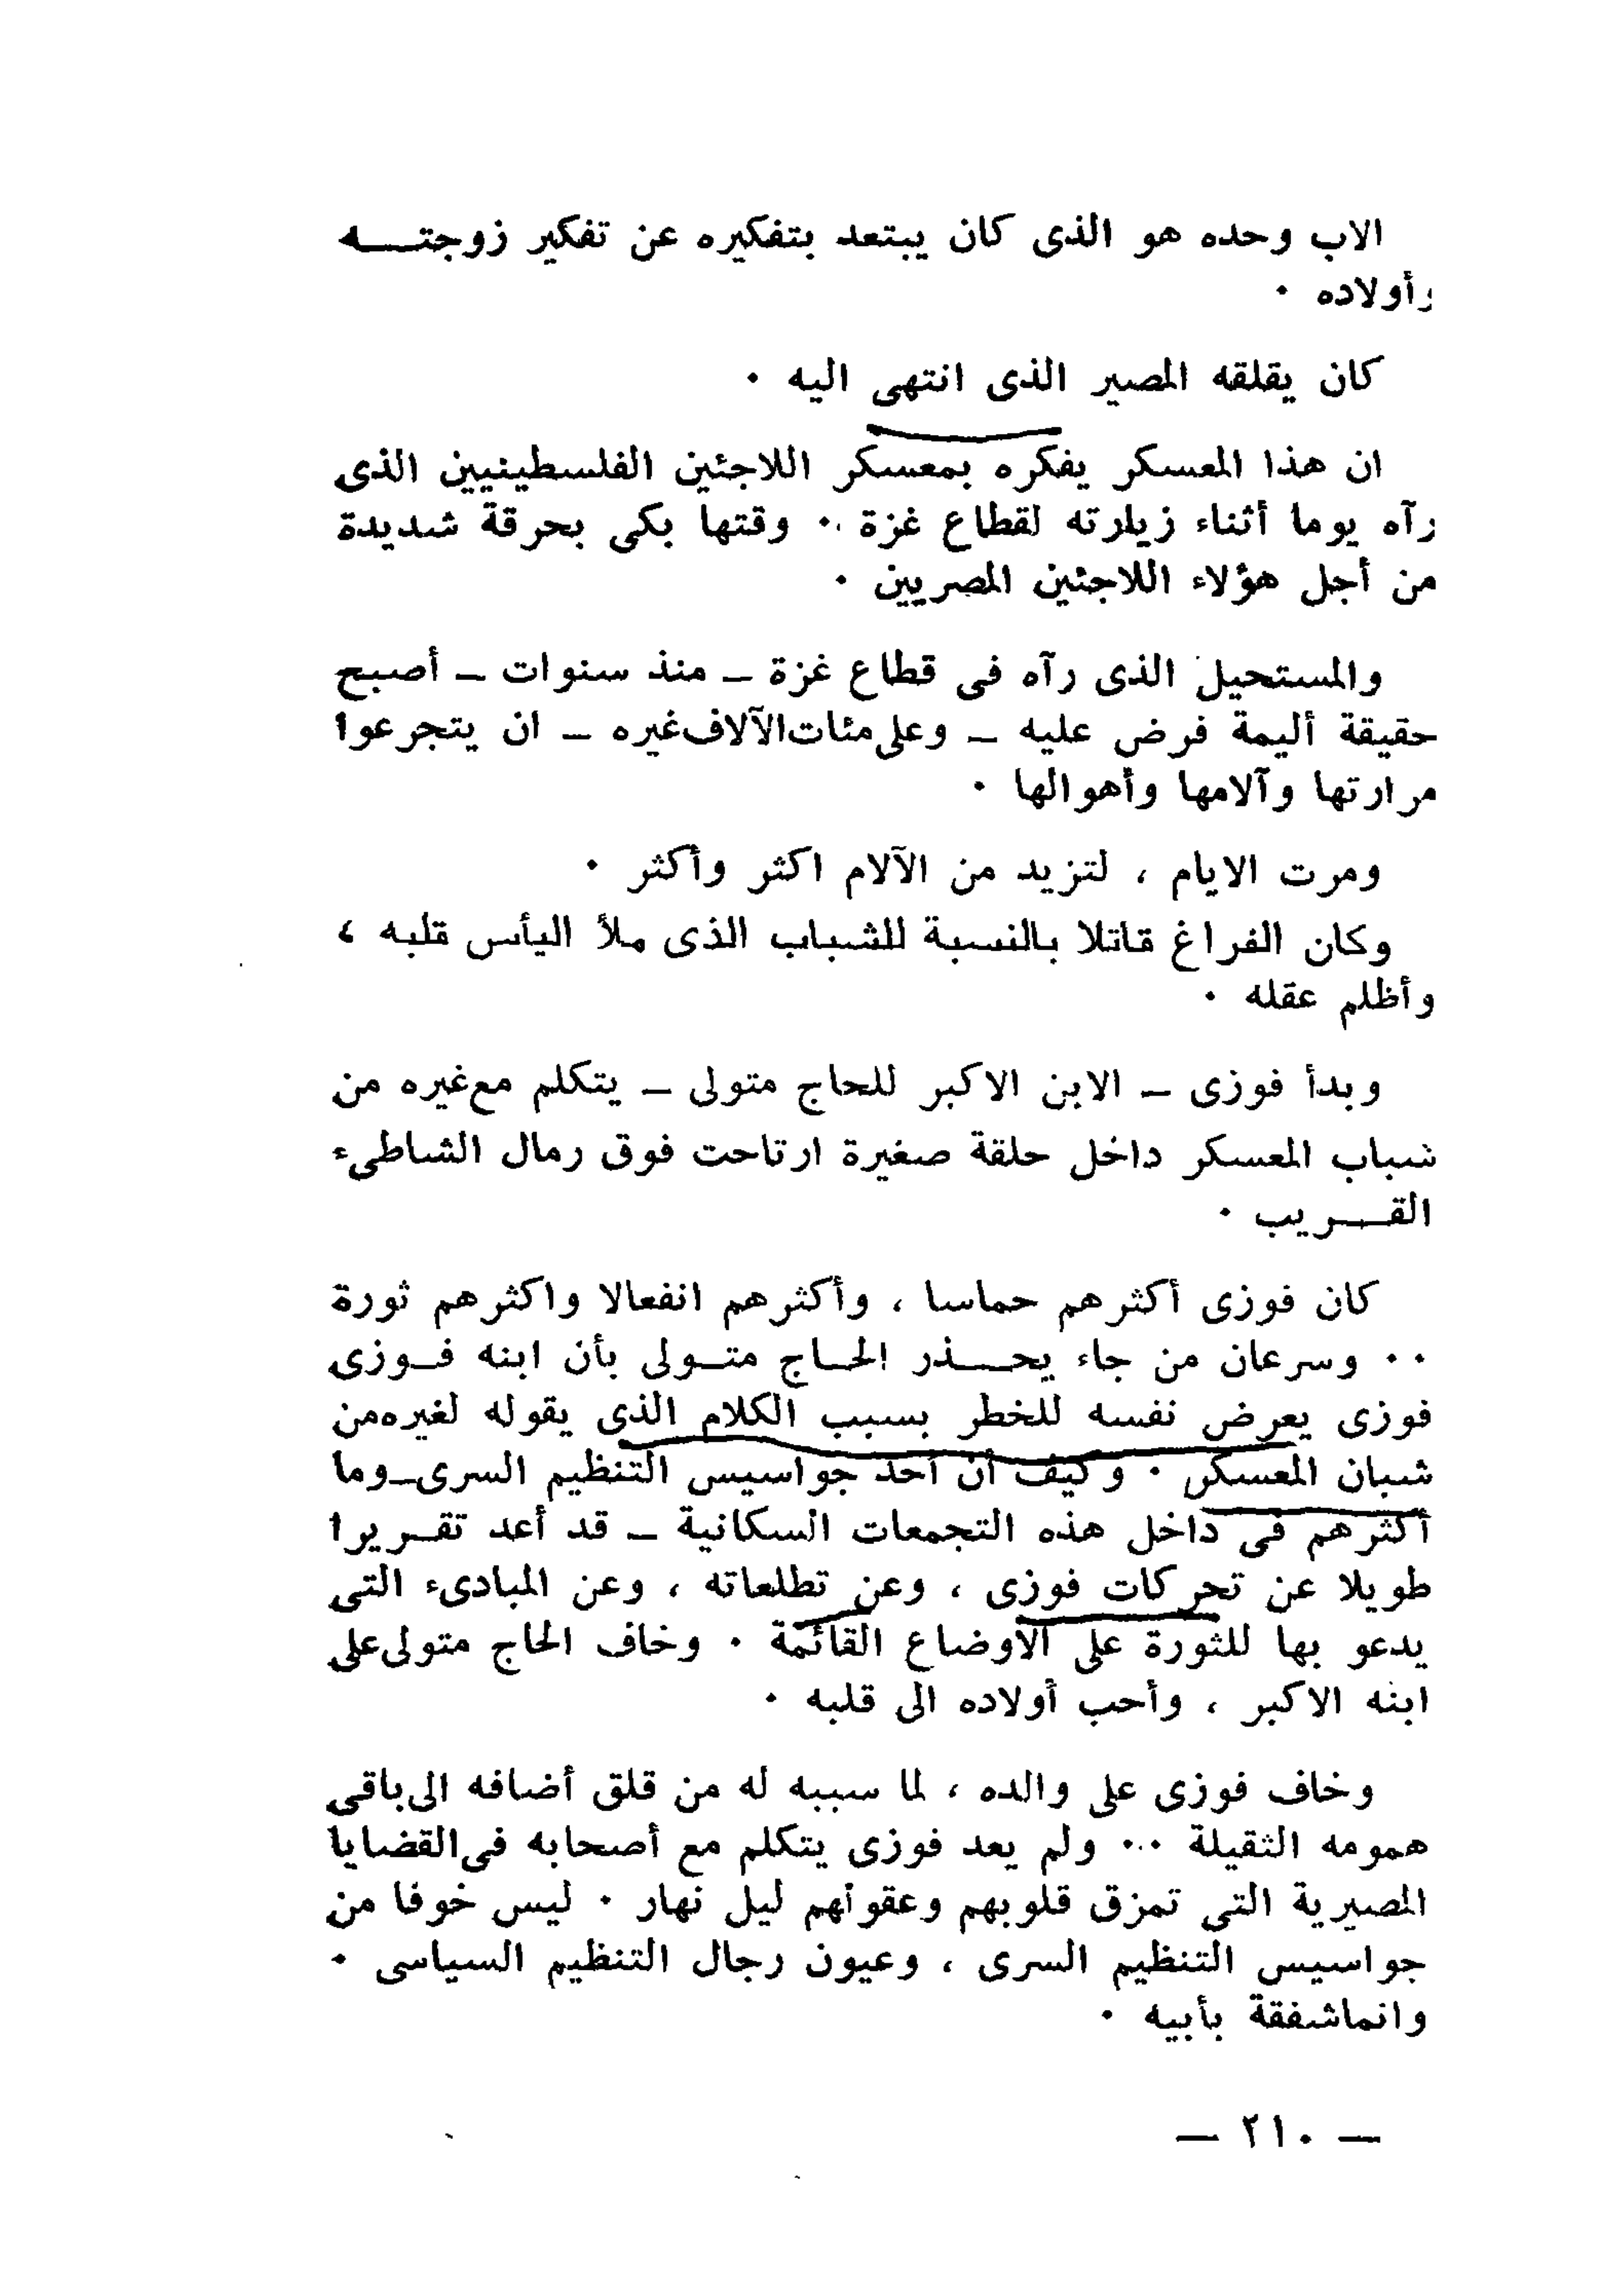 الاب وحده هو الذى كان يبتعد بتفكيره عن تفكير زوجتـــه
وأولاده ٠
كان يقلقه المصير الذى انتهى اليه ٠
ان هذا المعسكر يفكره بمعسكر اللاجئين الفلسطينيين الذى
رآه يوما أثناء زيارته لقطاع غزة ٠٠ وقتها بكى بحرقة شديدة
من أجل هؤلاء اللاجئين المصريين ٠
والمستحيل الذى رآه فى قطاع غزة – منذ سنوات – أصبح
حقيقة أليمة فرض عليه – وعلى مئات الآلاف غيره – ان يتجرعوا
مرارتها وآلامها وأهوالها ٠
ومرت الايام ، لتزيد من الآلام اكثر وأكثر ٠
وكان الفراغ قاتلا بالنسبة للشباب الذى ملأ اليأس قلبه ،
وأظلم عقله ٠
وبدأ فوزى – الابن الاكبر للحاج متولى – يتكلم مع غيره من
شباب المعسكر داخل حلقة صغيرة ارتاحت فوق رمال الشاطىء
القـــريب ٠
كان فوزى أكثرهم حماسا ، وأكثرهم انفعالا واكثرهم ثورة
٠٠ وسرعان من جاء يحـــذر الحـاج متـولى بأن ابنه فـوزى
فوزى يعرض نفسه للخطر بسبب الكلام الذى يقوله لغيره من
شبان المعسكر ٠ وكيف أن أحد جواسيس التنظيم السرى–وما
أكثرهم فى داخل هذه التجمعات السكانية – قد أعد تقـريرا
طويلا عن تحركات فوزى ، وعن تطلعاته ، وعن المبادىء التى
يدعو بها للثورة على الاوضاع القائمة ٠ وخاف الحاج متولى على
ابنه الاكبر ، وأحب أولاده الى قلبه ٠
وخاف فوزى على والده ، لما سببه له من قلق أضافه الى باقى
همومه الثقيلة ٠٠ ولم يعد فوزى يتكلم مع أصحابه فى القضايا
المصيرية التى تمزق قلوبهم وعقولهم ليل نهار ٠ ليس خوفا من
جواسيس التنظيم السرى ، وعيون رجال التنظيم السياسى ٠
وانما شفقة بأبيه ٠
— ٢١٠ —